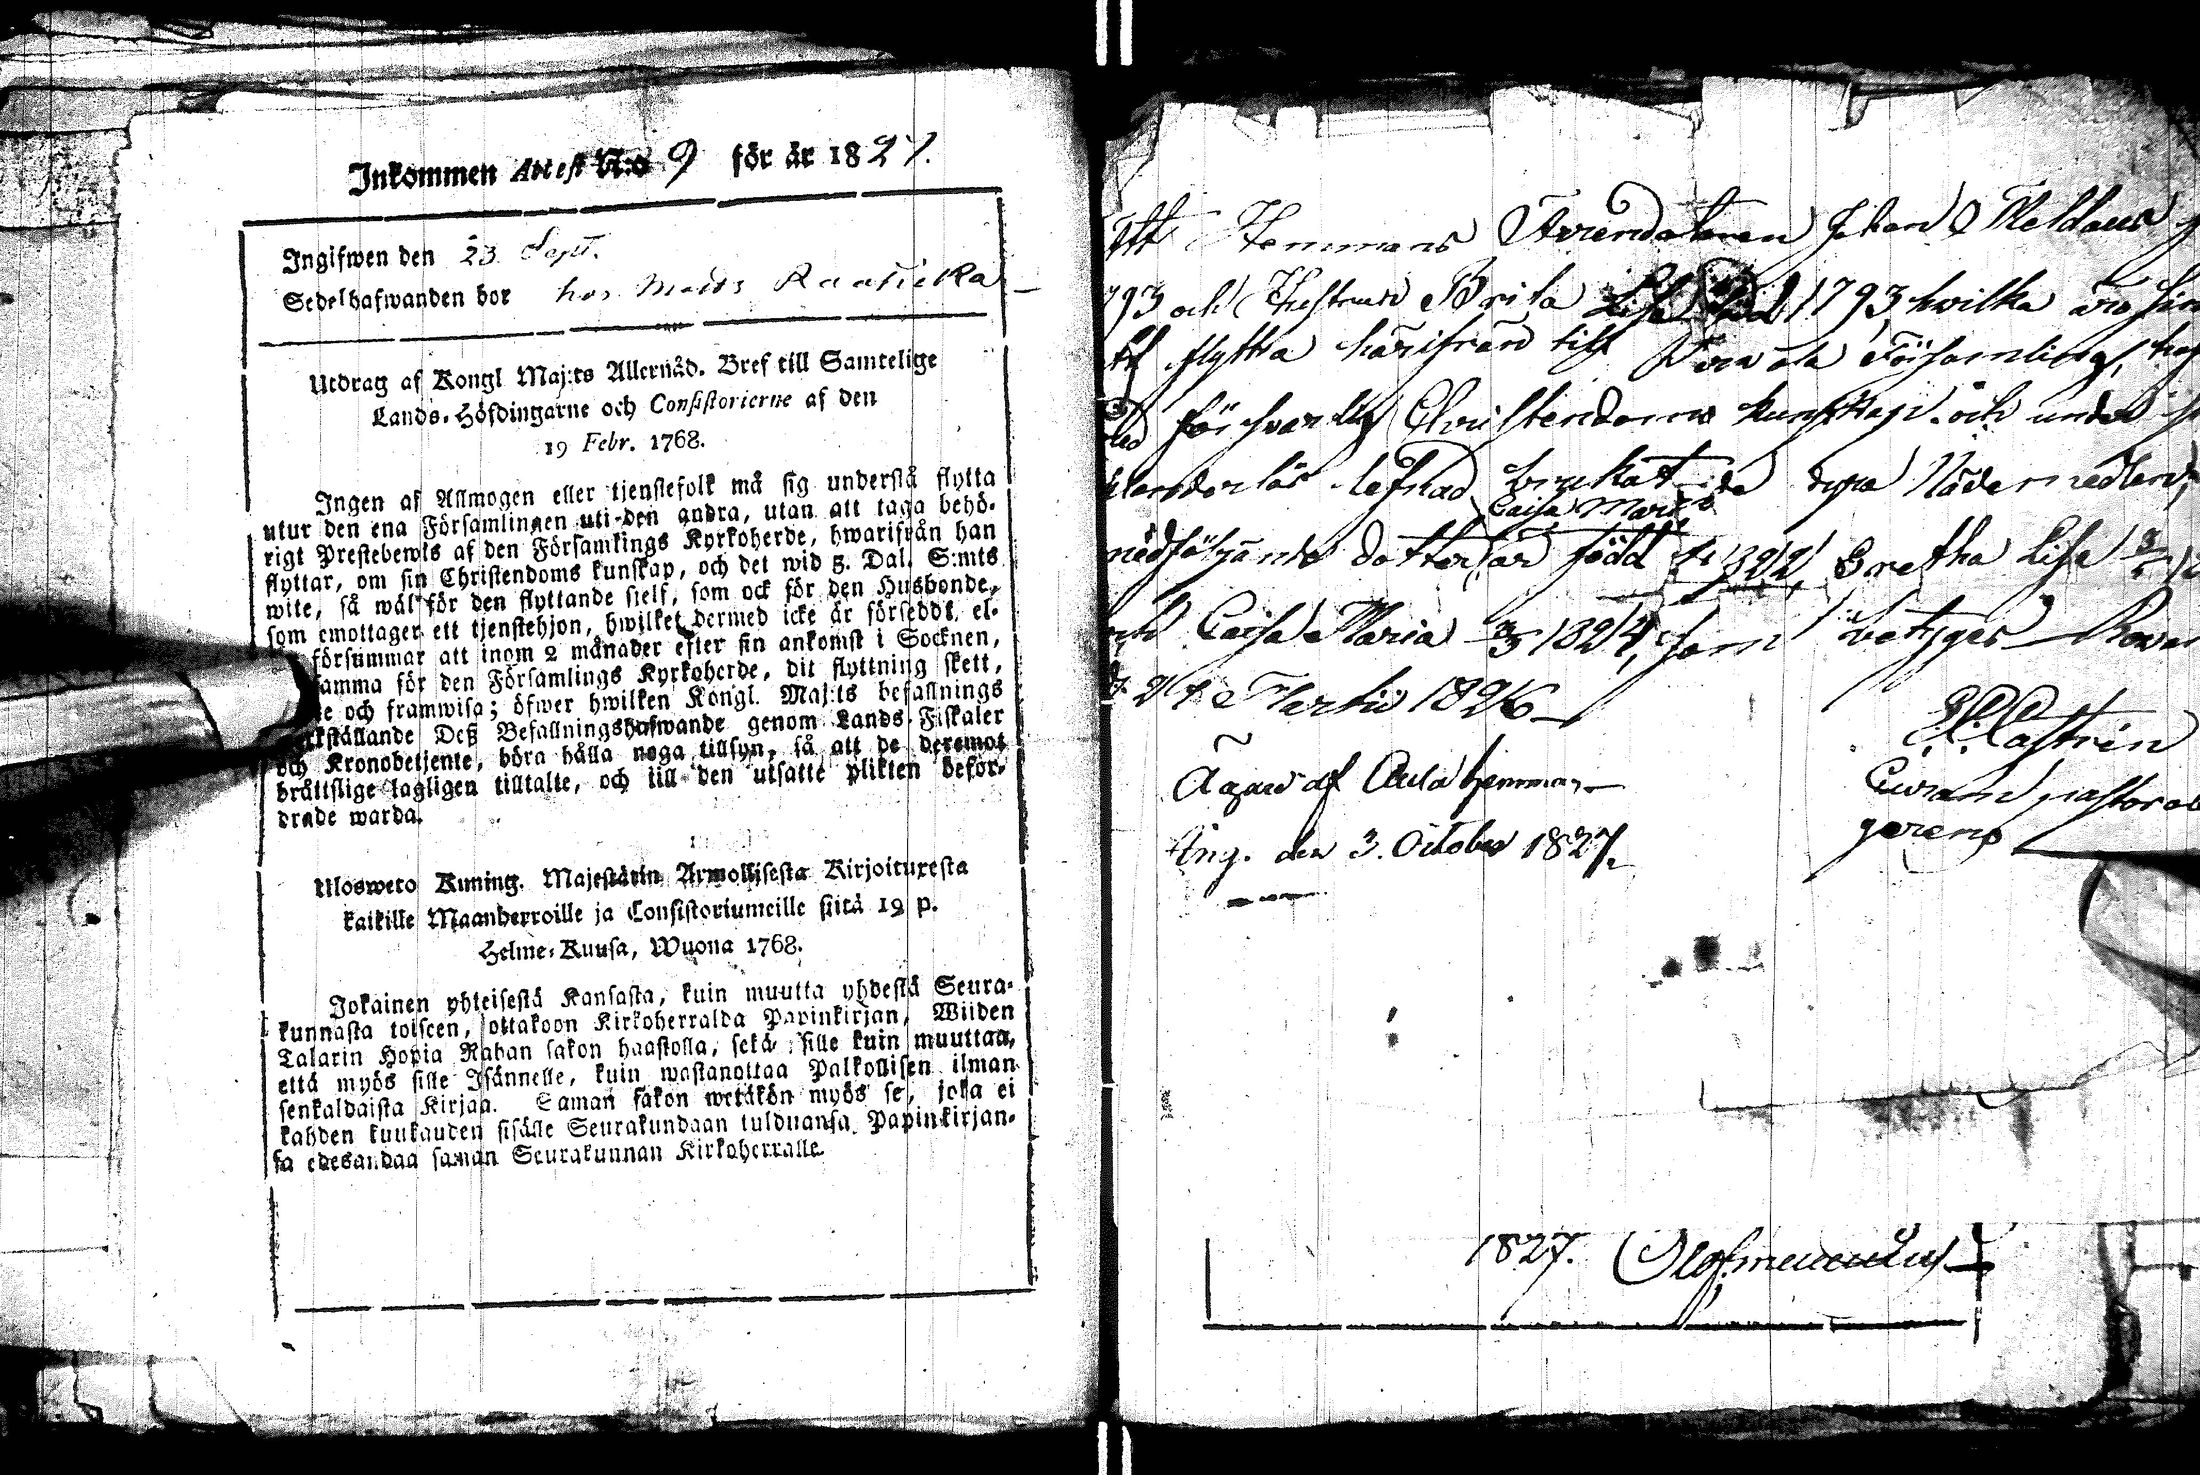 Inkommen Attest N:o 9 för år 1827.
Ingifwen den 23 Sept.
Sedelhafwanden bor hos Matts
Utdrag af Kongl Maj:ts Allernåd. Bref till Samtelige
Lands-Höfdingarne och Consistorierne af den
19 Febr. 1768.
Ingen af Allmogen eller tjenstefolk må sig understå flytta
utur den ena Församlingen uti den andra, utan att taga behö-
rigt Prestebewis af den Församlings Kyrkoherde, hwarifrån han
flyttar, om sin Christendoms kunskap, och det wid 5. Dal. S:mts
wite, så wäl för den flyttande sjelf, som ock för den Husbonde,
som emottager ett tjenstehjon, hwilket dermed icke är försedt, el-
försummar att inom 2 månader efter sin ankomst i Socknen,
samma för den Församlings Kyrkoherde, dit flyttning skett,
te och framwisa; öfwer hwilken Kongl. Maj:ts befallnings
werkställande Deß Befallningshafwande genom Lands-Fiskaler
och Kronobetjente, böra hålla noga tillsyn, så att de deremot
bråttslige lagligen tilltalte, och till den utsatte plikten befor-
drade warda.
Ulosweto Kuning. Majestätin Armollisesta Kirjoituxesta
kaikille Maanherroille ja Consistoriumeille siitä 19 p.
Helme-Kuusa, Wuona 1768.
Jokainen yhteisestä Kansasta, kuin muutta yhdestä Seura-
kunnasta toiseen, ottakoon Kirkoherralda Papinkirjan, Wiiden
Talarin Hopia Rahan sakon haastolla, sekä sille kuin muuttaa,
että myös sille Isännelle, kuin wastanottaa Palkollisen ilman
senkaldaista Kirjaa. Saman sakon wetäkön myös se, joka ei
kahden kuukauden sisälle Seurakundaan tulduansa Papinkirjan-
sa edesandaa saman Seurakunnan Kirkoherralle.
Att Hemmans Arrendatoren Johan Meldaus
793 och Hustrun Brita Lisa 1793 hwilka äro
att flytta härifrån till Församling,
försvarlig Christendoms kunskap och under
lefnad brukat de dyra Nådemedlen,
Caisa Maria
medföljande döttrar född 1822, Gretha Lisa
och Caisa Maria 3/5 1824, som betygas
d. 21 Martii 1826
Castrén
pastoral
gerens
Ägare af hemman
Ing. den 3. October 1827.
1827.